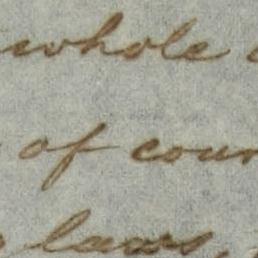 whole
of cour
laws,